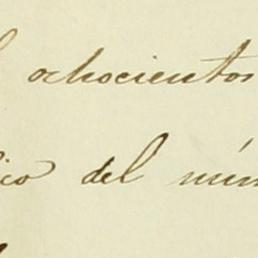 ochocientos
ico del núm